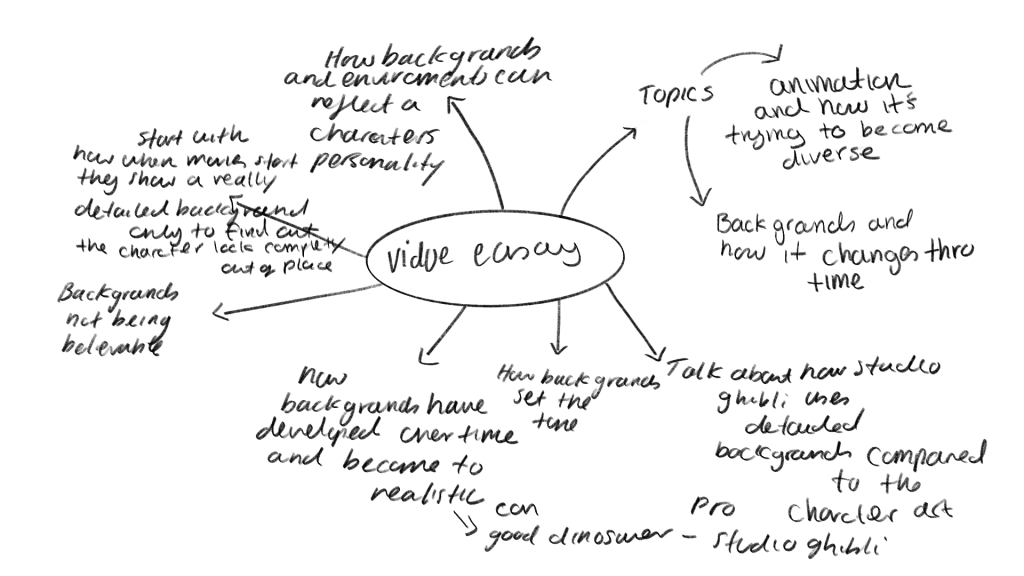 vidue easay
How backgrands
and enviroments can
reflect a
charaters
personality
Topics
animation
and how it's
trying to become
diverse
Backgrands and
how it changes thro
time
start with
how when movies start
they show a really
detailed background
only to find out
the charcter lack complety
out of place
Backgrands
not being
belevable
how
backgrands have
developed over time
and become to
realistic
con
good dinosuer -
pro
studio ghibli
How backgrands
set the
tone
Talk about how studio
ghibli uses
detailed
backgrands compared
to the
charcter art